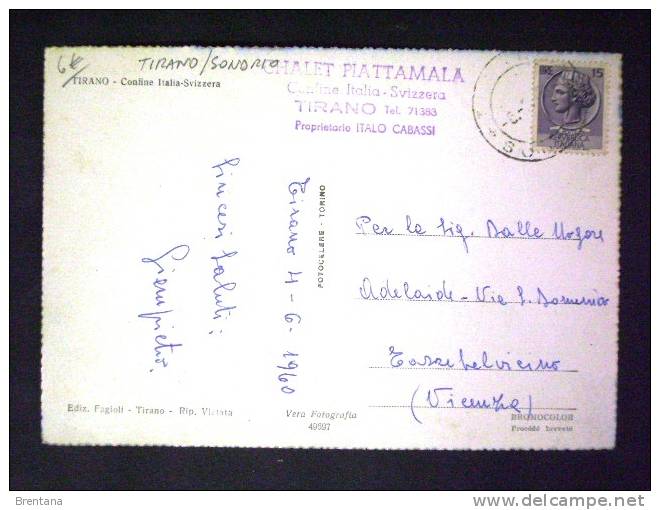 6€
TIRANO/SONDRIO
TIRANO - Confine Italia-Svizzera
CHALET PIATTAMALA
Confine Italia - Svizzera
TIRANO Tel. 71383
Proprietario ITALO CABASSI
15
REPUBBLICA
ITALIANA
Tirano 4-6-1960
Sinceri Saluti:
Giampietro
FOTOCELERE - TORINO
Per la Sig. Dalle
Adelaide - Via S. Domenico
Torrebelvicino
(Vicenza)
Ediz. Fagioli - Tirano - Rip. Vietata
Vera Fotografia
49597
BROMOCOLOR
Procédé breveté
Brentana
delcampe.net